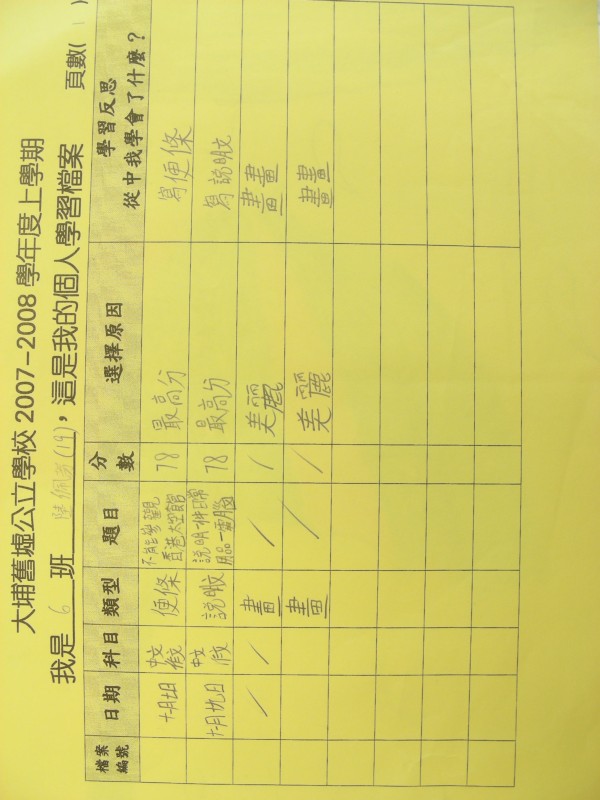 大埔舊墟公立學校 2007-2008 學年度上學期
我是 6 班 (19), 這是我的個人學習檔案 頁數( 1 )
檔案編號 日期 科目 類型 題目 分數 選擇原因 學習反思 從中我學會了什麼?
中文 便條 香港太空館 78 最高分 寫便條
十月廿九日 中文 說明文 說明一件日常用品—電腦 78 最高分 寫說明文
/ / 畫畫 / / 美麗 畫畫
畫畫 / / 美麗 畫畫